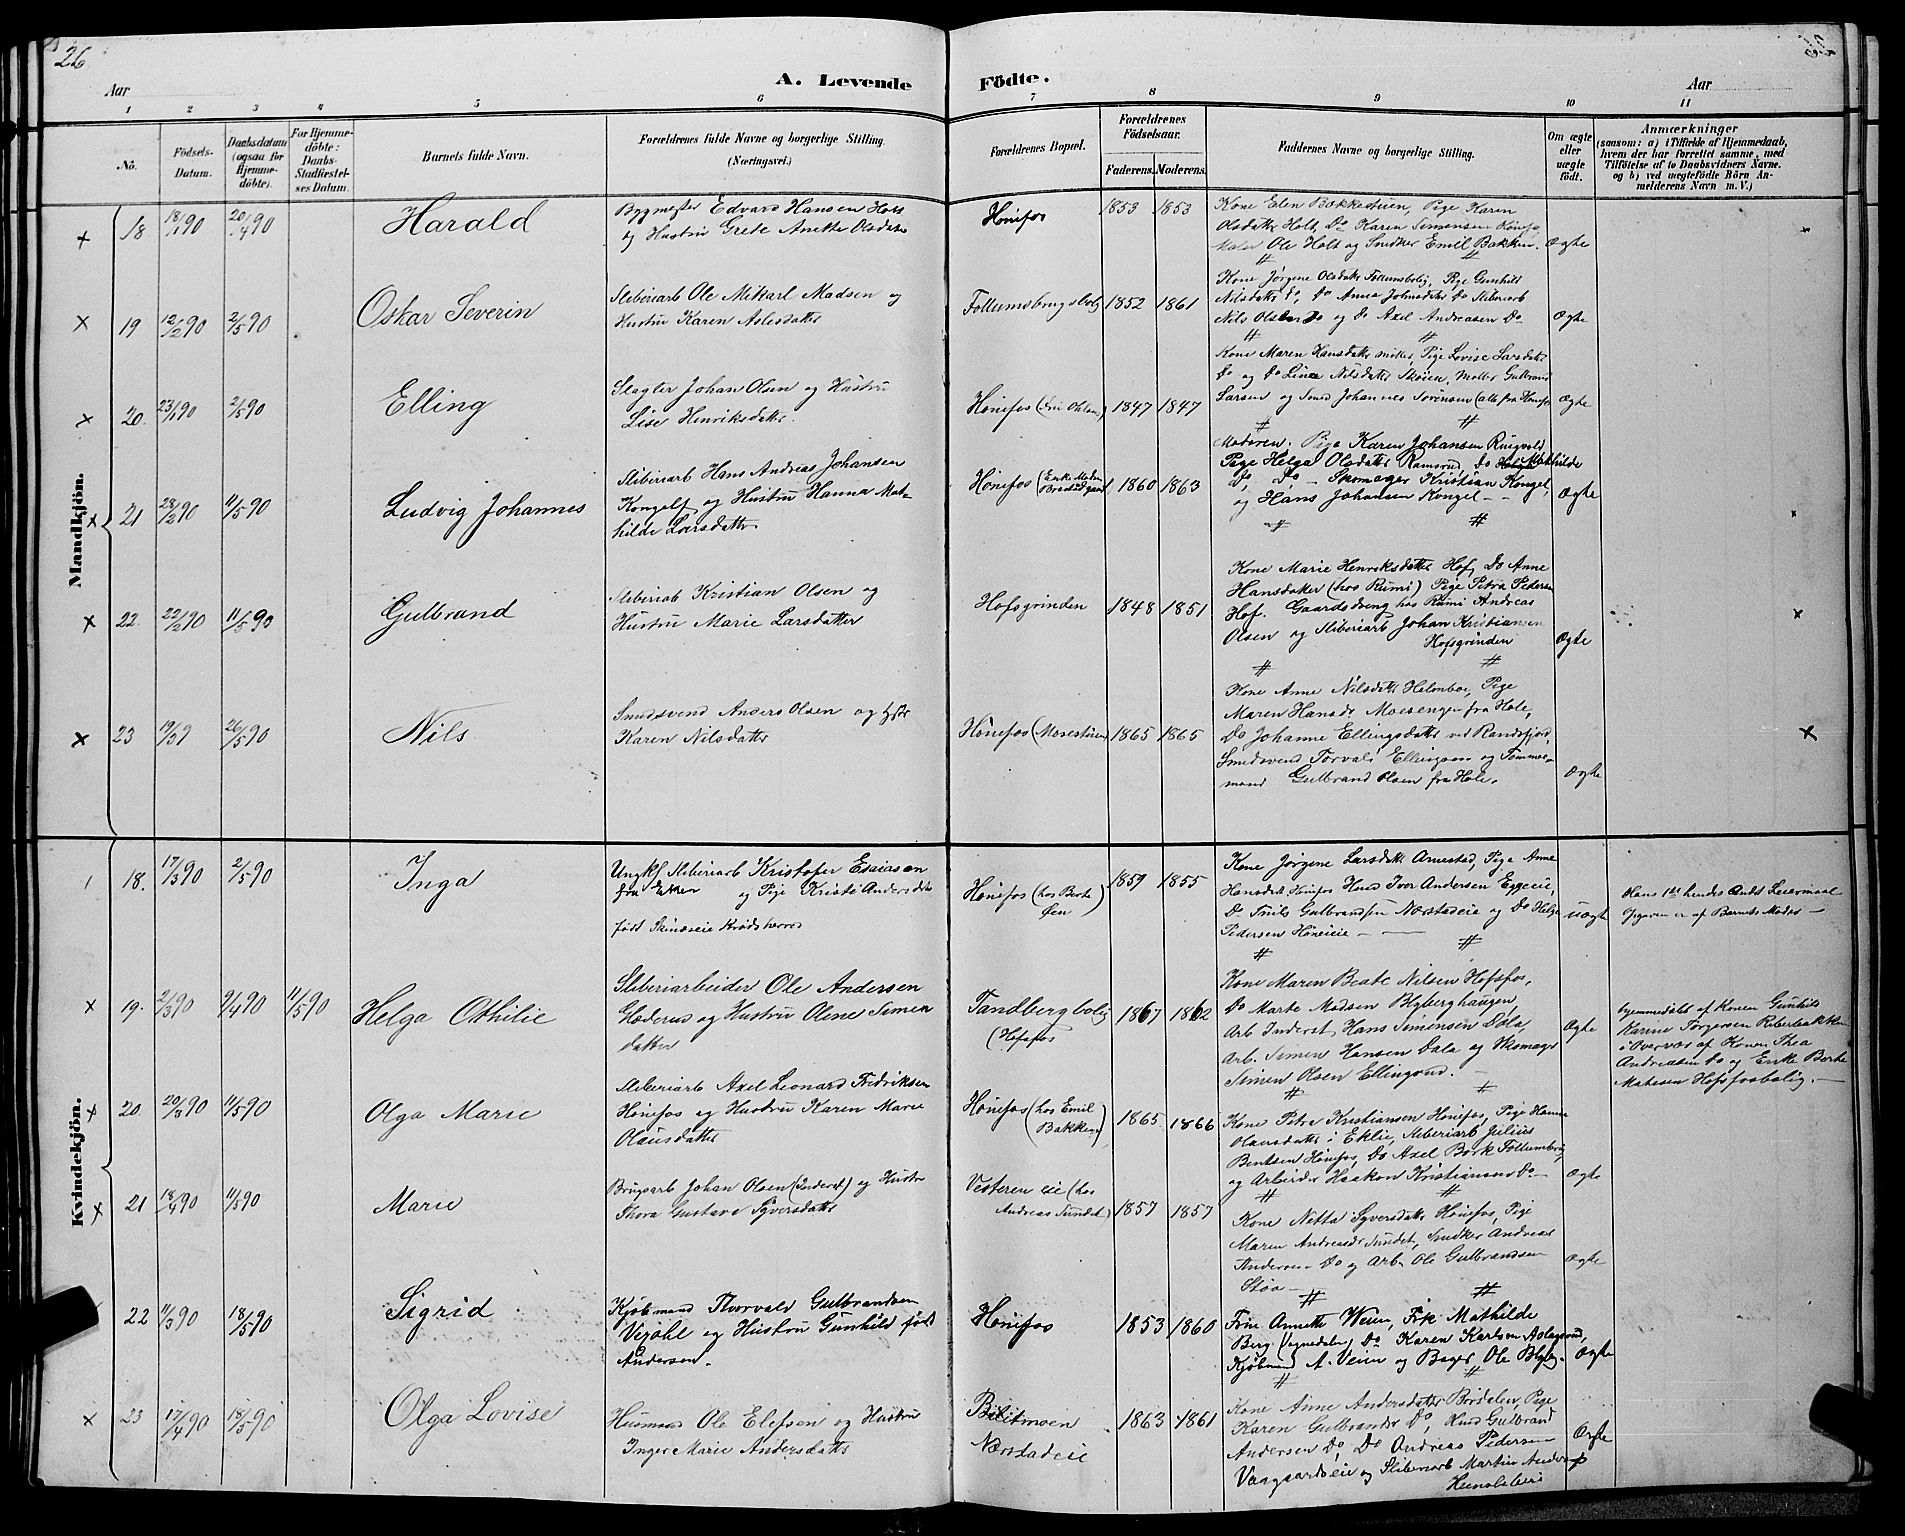 26
A. Levende Födte.
Aar
Aar
1 2 3 4 5 6 7 8 9 10 11
Nö.
Födsels-Datum.
Daabsdatum (ogsaa for Hjemme-döbte).
For Hjemme-döbte: Daabs-Stadfæstel-ses Datum.
Barnets fulde Navn.
Forældrenes fulde Navne og borgerlige Stilling. (Næringsvei.)
Forældrenes Bopæl.
Forældrenes Födselsaar.
Faderens. Moderens.
Faddernes Navne og borgerlige Stilling.
Om ægte eller uægte født.
Anmærkninger
(saasom: a) i Tilfælde af Hjemmedaab, hvem der har forrettet samme, med Tilföielse af to Daabsvidners Navne, og b) ved uægtefödte Börn An-melderens Navn m. V.)
Mandkjön.
18 18/1 90 20/4 90
Harald
Bygmester Edvard Hansen Holt
og Hustru Grete Anette Olsdatter
Hönefos
1853 1853
Kone Elen Bakkestuen, Pige Karen
Olsdatter Holt, Do Karen Simensen Hönefos
Maler Ole Holt og Snedker Emil Bakken.
Ægte
19 12/2 90 2/5 90
Oskar Severin
Sliberiarb Ole Mikael Madsen og
Hustru Karen Aslesdatter
Follumsbrugsbolig
1852 1861
Kone Jörgene Olsdatter Follumsbolig, Pige Gunhild
Nilsdatter Do, Do Anna Johnsdatter Do Sliberiarb
Nils Olsen Do og Do Axel Andreasen Do
Ægte
20. 23/1 90 2/5 90
Elling
Slagter Johan Olsen og Hustru
Lise Henriksdatter.
Hönefos
1847 1847
Kone Maren Hansdatter Möller, Pige Lovise Larsdatter
Do og Do Lina Nilsdatter Skoien, Moller Gulbrand
Larsen og Smed Johannes Sørensen (alle fra Hönefos
Ægte
21 28/2 90 11/5 90
Ludvig Johannes
Sliberiarb Hans Andreas Johansen
Kongel og Hustru Hanna Mat-
hilde Larsdatter.
Hönefos
1860 1863
Moderen. Pige Karen Johansen Ringvold
Pige Helga Olsdatter Ramsrud, Do Mathilde
Do, Do - Skomager Kristian Kongel,
og Hans Johansen Kongel - -
Ægte
22. 22/2 90 11/5 90
Gulbrand
Sliberiab Kristian Olsen og
Hustru Marie Larsdatter
Hofsgrinden
1848 1851
Kone Marie Henriksdatter Hof, Do Anne
Hansdatter (hos Rumi) Pige Petra Pedersen
Hof. Gaardsdreng hos Rumi Andreas
Olsen og Sliberiarb Johan Kristiansen
Hofsgrinden
Ægte
23 19/3 9 26/5 90
Nils
Smedsvend Anders Olsen og Hstr
Karen Nilsdatter
Hönefos (Mosestuen)
1865 1865
Kone Anne Nilsdatter Helenboe, Pige
Maren Hansdr Moesengen fra Hole,
Do Johanne Ellingsdatter ved Randsfjord,
Smedsvend Torvald Ellingsen og Tömmer-
mand Gulbrand Olsen fra Hole.
Ægte
Kvindekjön.
18. 17/3 90 2/5 90
Inga
Ungkf Sliberiarb Kristofer Esaiasen
og Pige Kristi Andersdatter
född Skinæseie Krödsherred
Hönefos (hos Berte
Øen)
1859 1855
Kone Jörgene Larsdatter Arnestad, Pige Anne
Hansdatter Hönefos Husm Iver Andersen Eggeeie,
Do Truls Gulbrandsen Nærstadeie og Do Helge
Pedersen Höneieie
uægte
Hans 1ste hendes Andet Leiermaal
Opgaven er af Barnets Moder -
19. 2/3 90 9/4 90 11/5 90
Helga Othilie
Sliberiarbeider Ole Andersen
Gladerud og Hustru Olene Simen
datter
Tandbergbolig
(Hofsfos
1867 1862
Kone Maren Beate Nilsen Hofsfos,
Do Marte Madsen Blyberghaugen,
Arb Inderst Hans Simensen Dala,
Arb. Simen Hansen Dala og Skomager
Simen Olsen Ellingsrud.
Ægte
hjemmedöbt af Konen Gunhild
Karine Torgersen
i Overvær af Konen Thea
Andreasen Do og Enke Berte
Matesen Hofsfosbolig. -
20. 20/3 90 11/5 90
Olga Marie
Sliberiarb Axel Leonard Fredriksen
Hönefos og Hustru Karen Marie
Olausdatter
Hönefos (hos Emil
Bakken)
1865 1866
Kone Petra Kristiansen Hönefos, Pige Hanna
Olausdatter i Eklie, Sliberiarb Julius
Bentsen Hönefos, Do Axel Bork Follumbrug
og Arbeider Haakon Kristiansen Do
Ægte
21 18/4 90 11/5 90
Marie
Brugsarb Johan Olsen (Inderst) og Hustru
Thora Gustava Syversdatter
Vesteren eie (hos
Andreas Sundet)
1857 1857
Kone Netta Syversdatter Hönefos, Pige
Maren Andreasdr Sundet, Snedker Andreas
Andersen Do og Arb Ole Gulbrandsen
Stöa
Ægte
22 11/3 90 18/5 90
Sigrid
Kjöbmand Thorvald Gulbrandsen
Vejöhl og Hustru Gunhild född
Andersen.
Hönefos
1853 1860
Frue Annette Weien, Frk Mathilde
Berg (Sognedalen), Do Karen Karlsen Aslagsrud,
Kjöbmd A. Veien og Bager Ole Blyb.
Ægte
23 17/4 90 18/5 90
Olga Lovise
Husmand Ole Elefsen og Hustru
Inger Marie Andersdatter
Bilitmoen
Nærstadeie
1863 1861
Kone Anne Andersdatter Børdalen, Pige
Karen Gulbrandsdr Do, Husm Gulbrand
Andersen Do, Do Andreas Pedersen
Vaagaardseie og Sliberiarb Martin Anders
Ægte